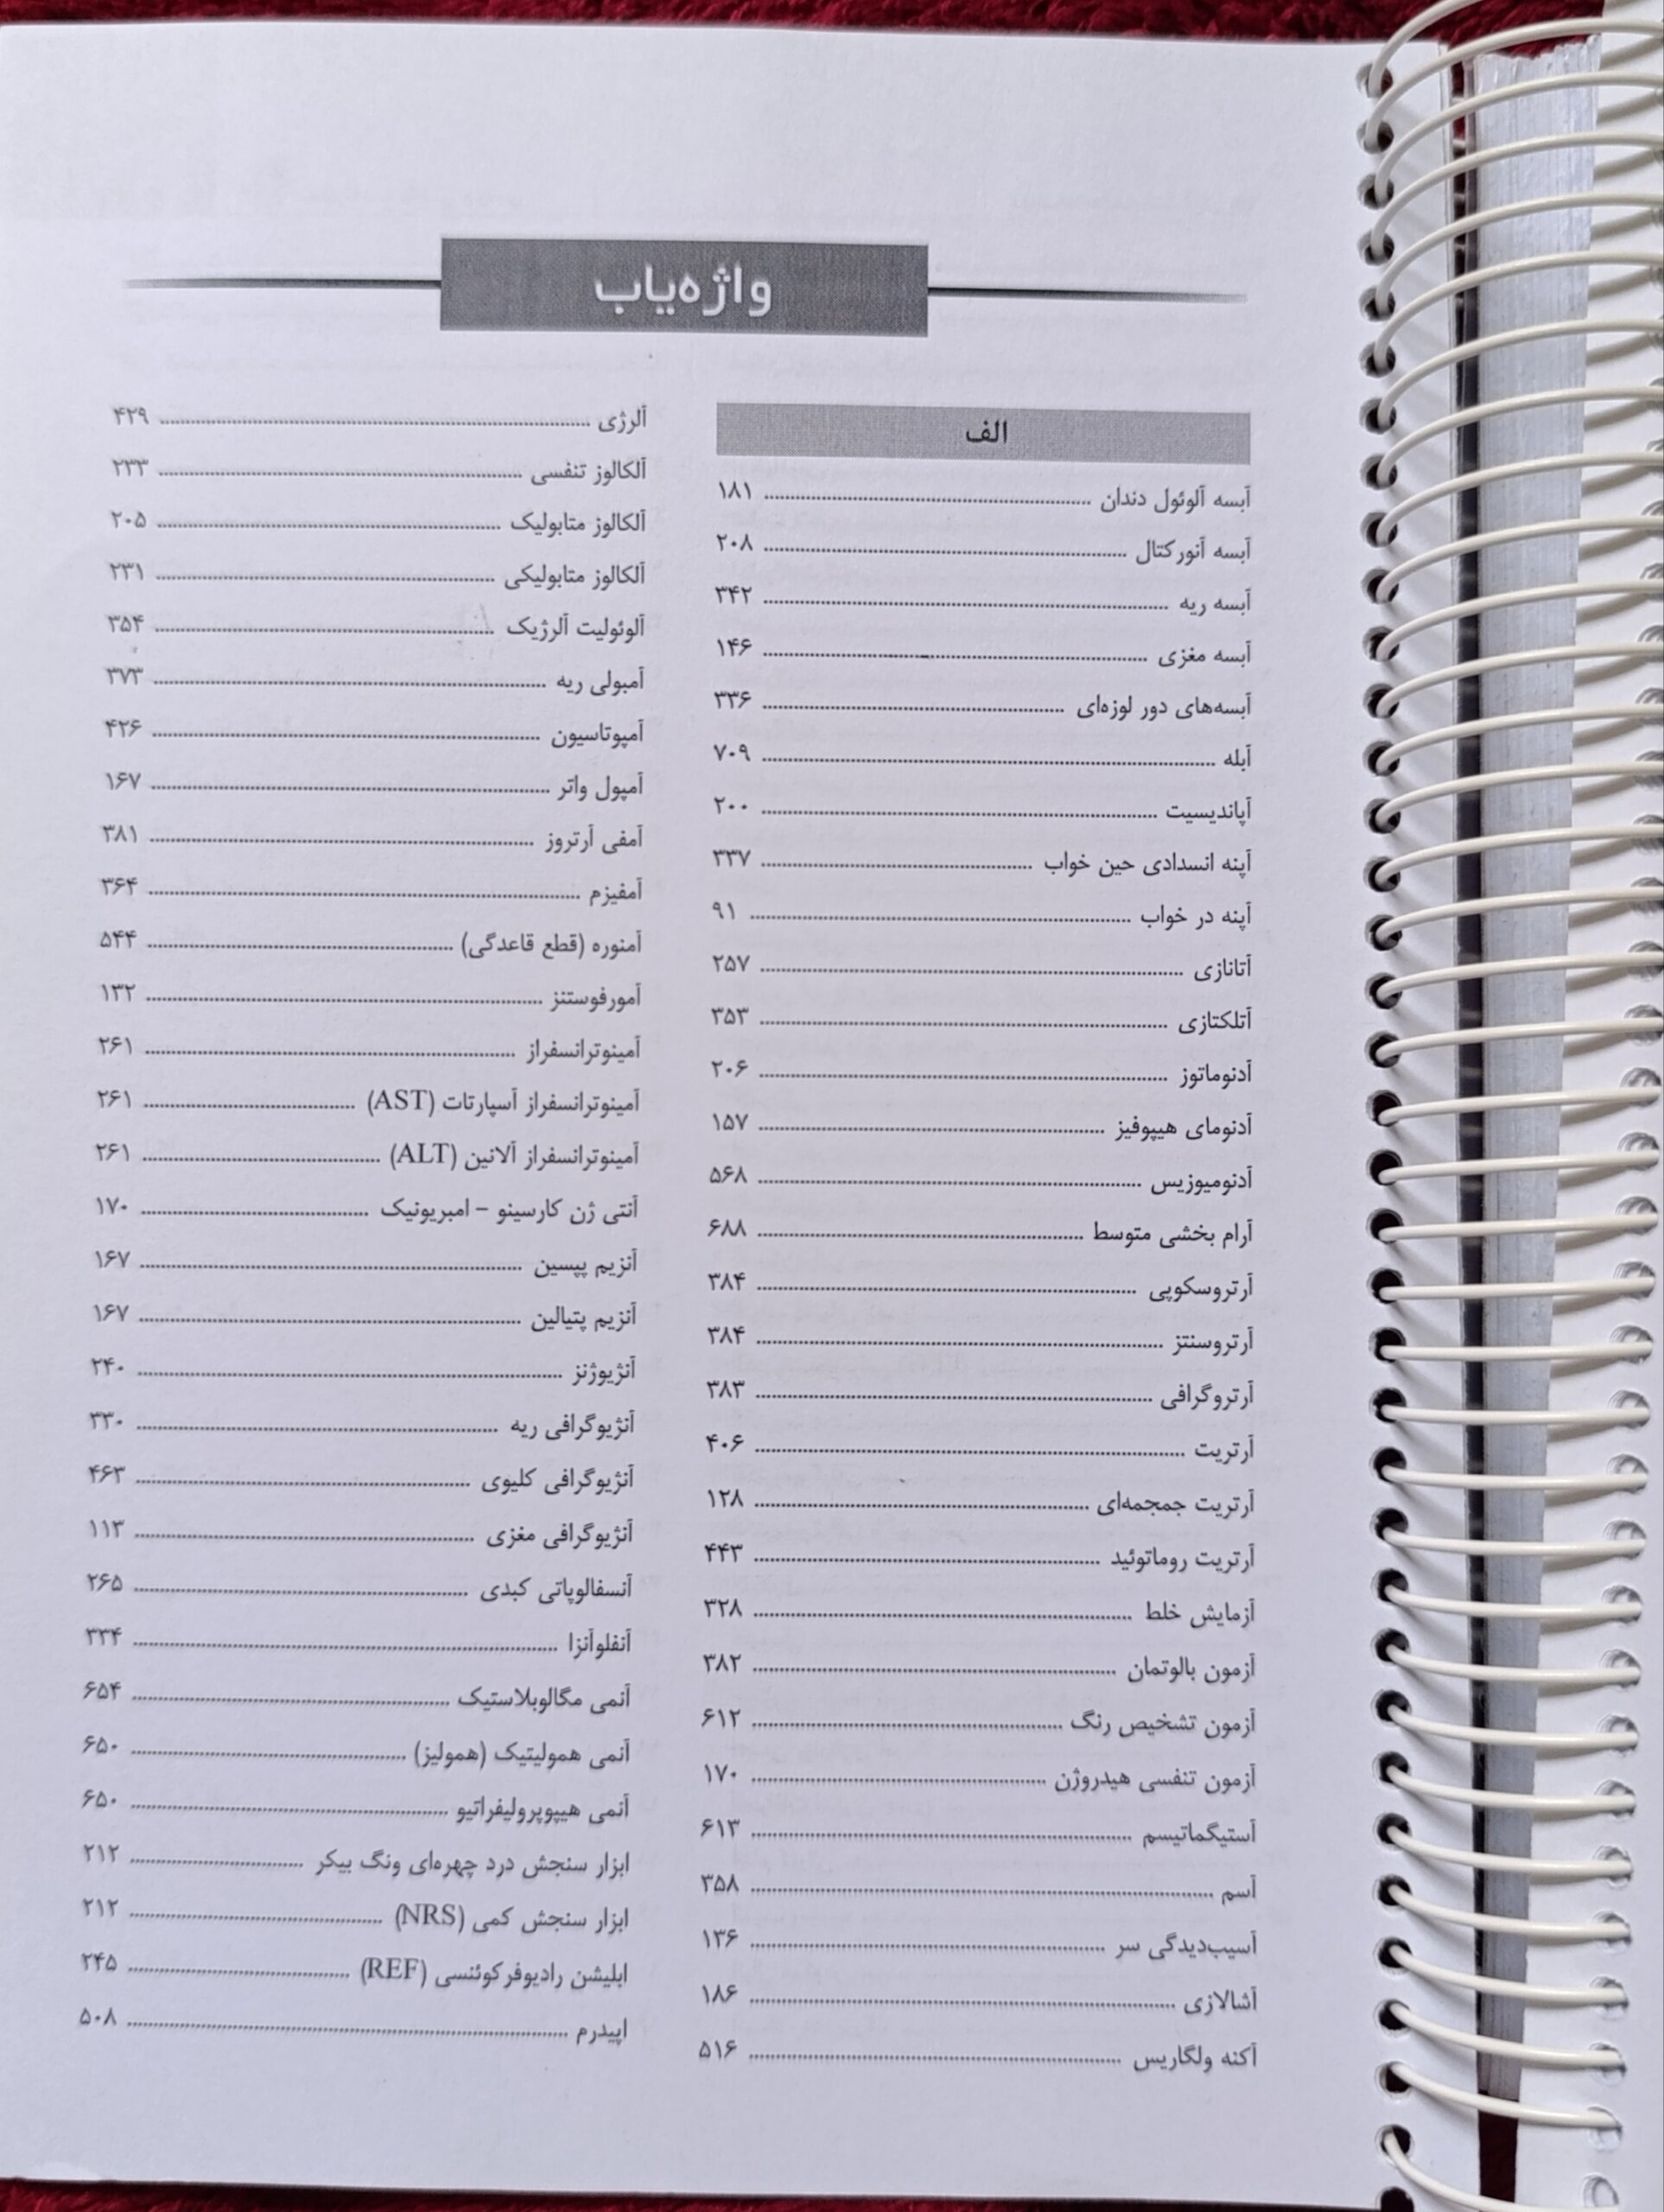 واژه‌یاب
الف
آبسه آلوئول دندان ۱۸۱
آبسه آنورکتال ۲۰۸
آبسه ریه ۳۴۲
آبسه مغزی ۱۴۶
آبسه‌های دور لوزه‌ای ۳۳۶
آبله ۷۰۹
آپاندیسیت ۲۰۰
آپنه انسدادی حین خواب ۳۳۷
آپنه در خواب ۹۱
آتانازی ۲۵۷
آتلکتازی ۳۵۳
آدنوماتوز ۲۰۶
آدنومای هیپوفیز ۱۵۷
آدنومیوزیس ۵۶۸
آرام بخشی متوسط ۶۸۸
آرتروسکوپی ۳۸۴
آرتروسنتز ۳۸۴
آرتروگرافی ۳۸۳
آرتریت ۴۰۶
آرتریت جمجمه‌ای ۱۲۸
آرتریت روماتوئید ۴۴۳
آزمایش خلط ۳۲۸
آزمون بالوتمان ۳۸۲
آزمون تشخیص رنگ ۶۱۲
آزمون تنفسی هیدروژن ۱۷۰
آستیگماتیسم ۶۱۳
آسم ۳۵۸
آسیب‌دیدگی سر ۱۳۶
آشالازی ۱۸۶
آکنه ولگاریس ۵۱۶
آلرژی ۴۲۹
آلکالوز تنفسی ۲۳۳
آلکالوز متابولیک ۲۰۵
آلکالوز متابولیکی ۲۳۱
آلوئولیت آلرژیک ۳۵۴
آمبولی ریه ۳۷۳
آمپوتاسیون ۴۲۶
آمپول واتر ۱۶۷
آمفی آرتروز ۳۸۱
آمفیزم ۳۶۴
آمنوره (قطع قاعدگی) ۵۴۴
آمورفوستنز ۱۳۲
آمینوترانسفراز ۲۶۱
آمینوترانسفراز آسپارتات (AST) ۲۶۱
آمینوترانسفراز آلانین (ALT) ۲۶۱
آنتی ژن کارسینو – امبریونیک ۱۷۰
آنزیم پپسین ۱۶۷
آنزیم پتیالین ۱۶۷
آنژیوژنز ۲۴۰
آنژیوگرافی ریه ۳۳۰
آنژیوگرافی کلیوی ۴۶۳
آنژیوگرافی مغزی ۱۱۳
آنسفالوپاتی کبدی ۲۶۵
آنفلوآنزا ۳۳۴
آنمی مگالوبلاستیک ۶۵۴
آنمی همولیتیک (همولیز) ۶۵۰
آنمی هیپوپرولیفراتیو ۶۵۰
ابزار سنجش درد چهره‌ای ونگ بیکر ۲۱۲
ابزار سنجش کمی (NRS) ۲۱۲
ابلیشن رادیوفرکوئنسی (REF) ۲۴۵
اپیدرم ۵۰۸